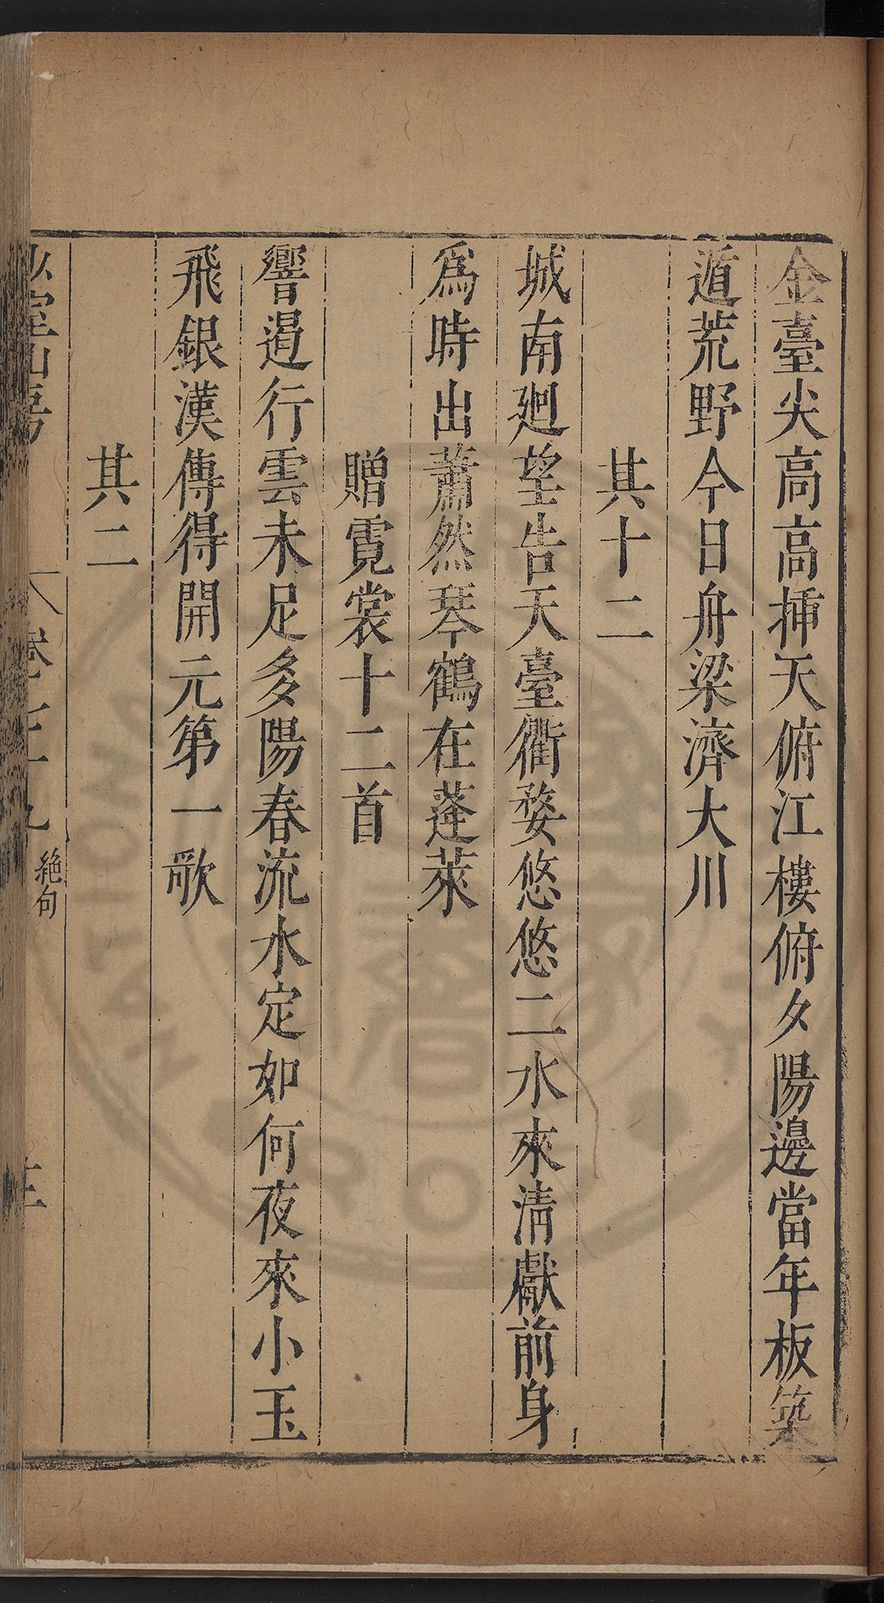 金臺尖高高揷天俯江樓俯夕陽邊當年板築
遁荒野今日舟梁濟大川
其十二
城南廻望告天臺衢婺悠悠二水來淸獻前身
爲時出蕭然琴鶴在蓬萊
贈霓裳十二首
響遏行雲未足多陽春流水定如何夜來小玉
飛銀漢傳得開元第一歌
其二
絕句